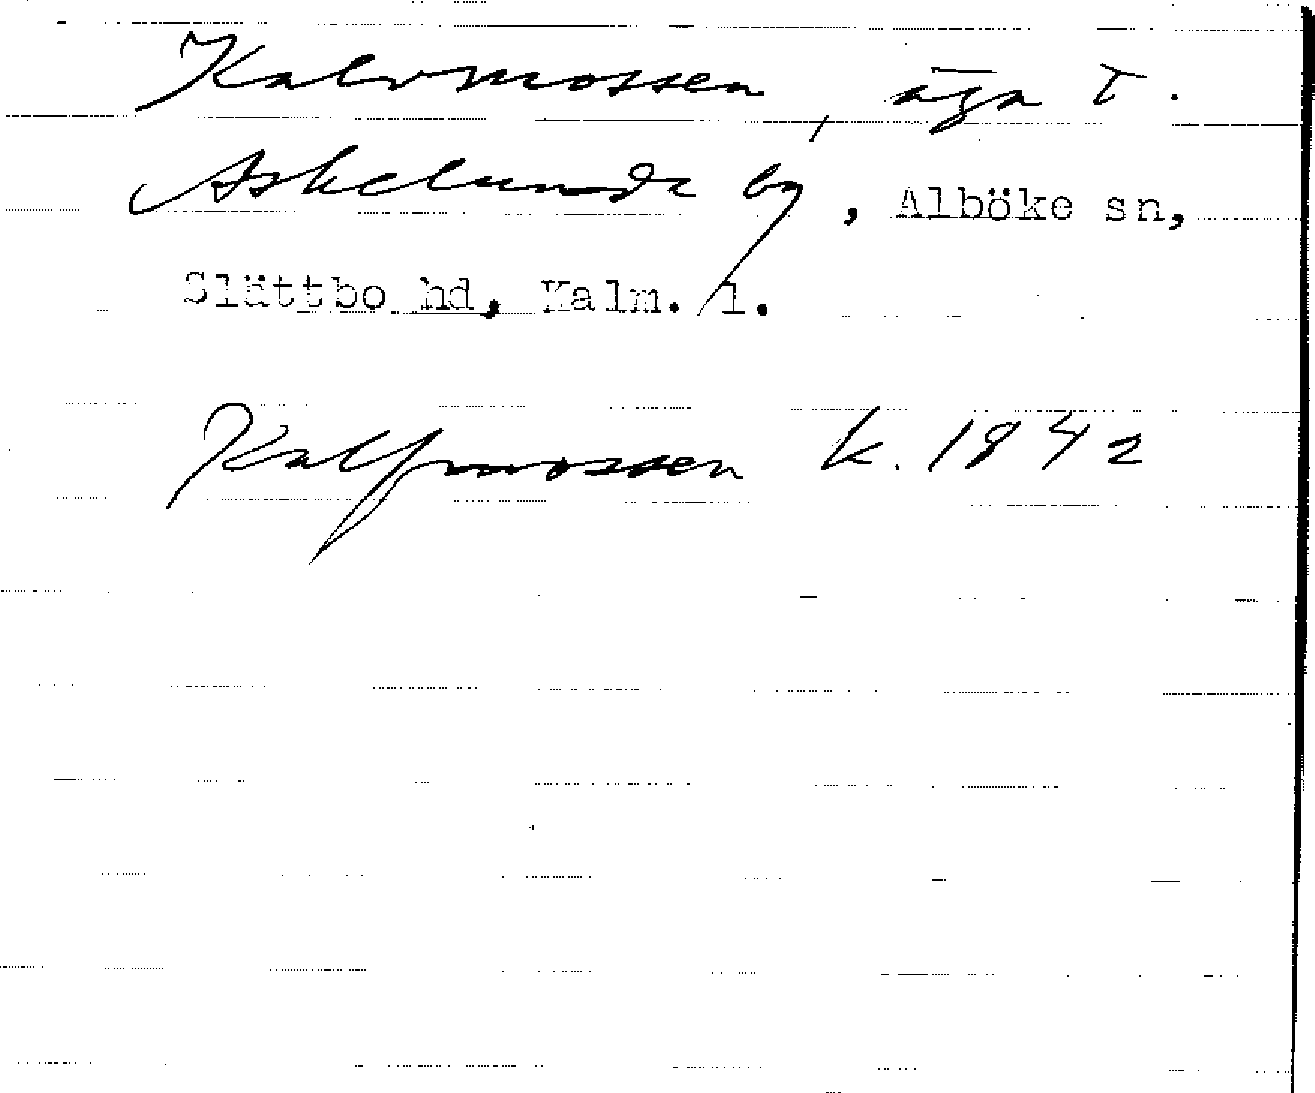 Kalvmossen, äga t.
Askelunda by, Alböke sn,
Slättbo hd, Kalm. l.
Kalfmossen k. 1842